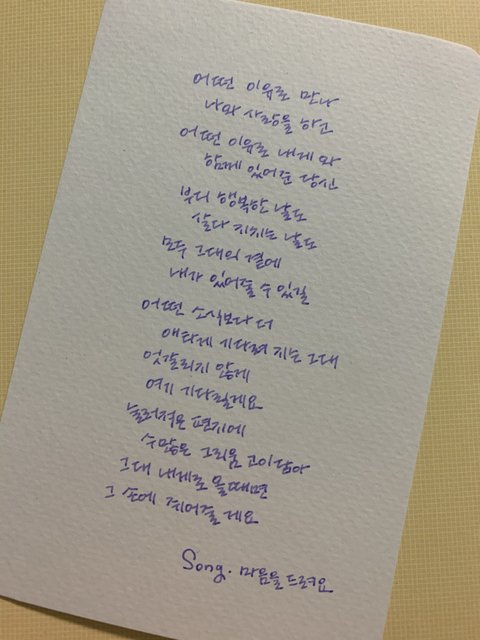 어떤 이유로 만나
나와 사랑을 하고
어떤 이유로 내게 와
함께 있어준 당신
부디 행복한 날도
살다 지치는 날도
모두 그대의 곁에
내가 있어줄 수 있길
어떤 소식보다 더
애타게 기다려 지는 그대
엇갈리지 않게
여기 기다릴게요
눌러적은 편지에
수많은 그리움 고이담아
그대 내게로 올때면
그 손에 쥐어줄 게요
Song. 마음을 드려요